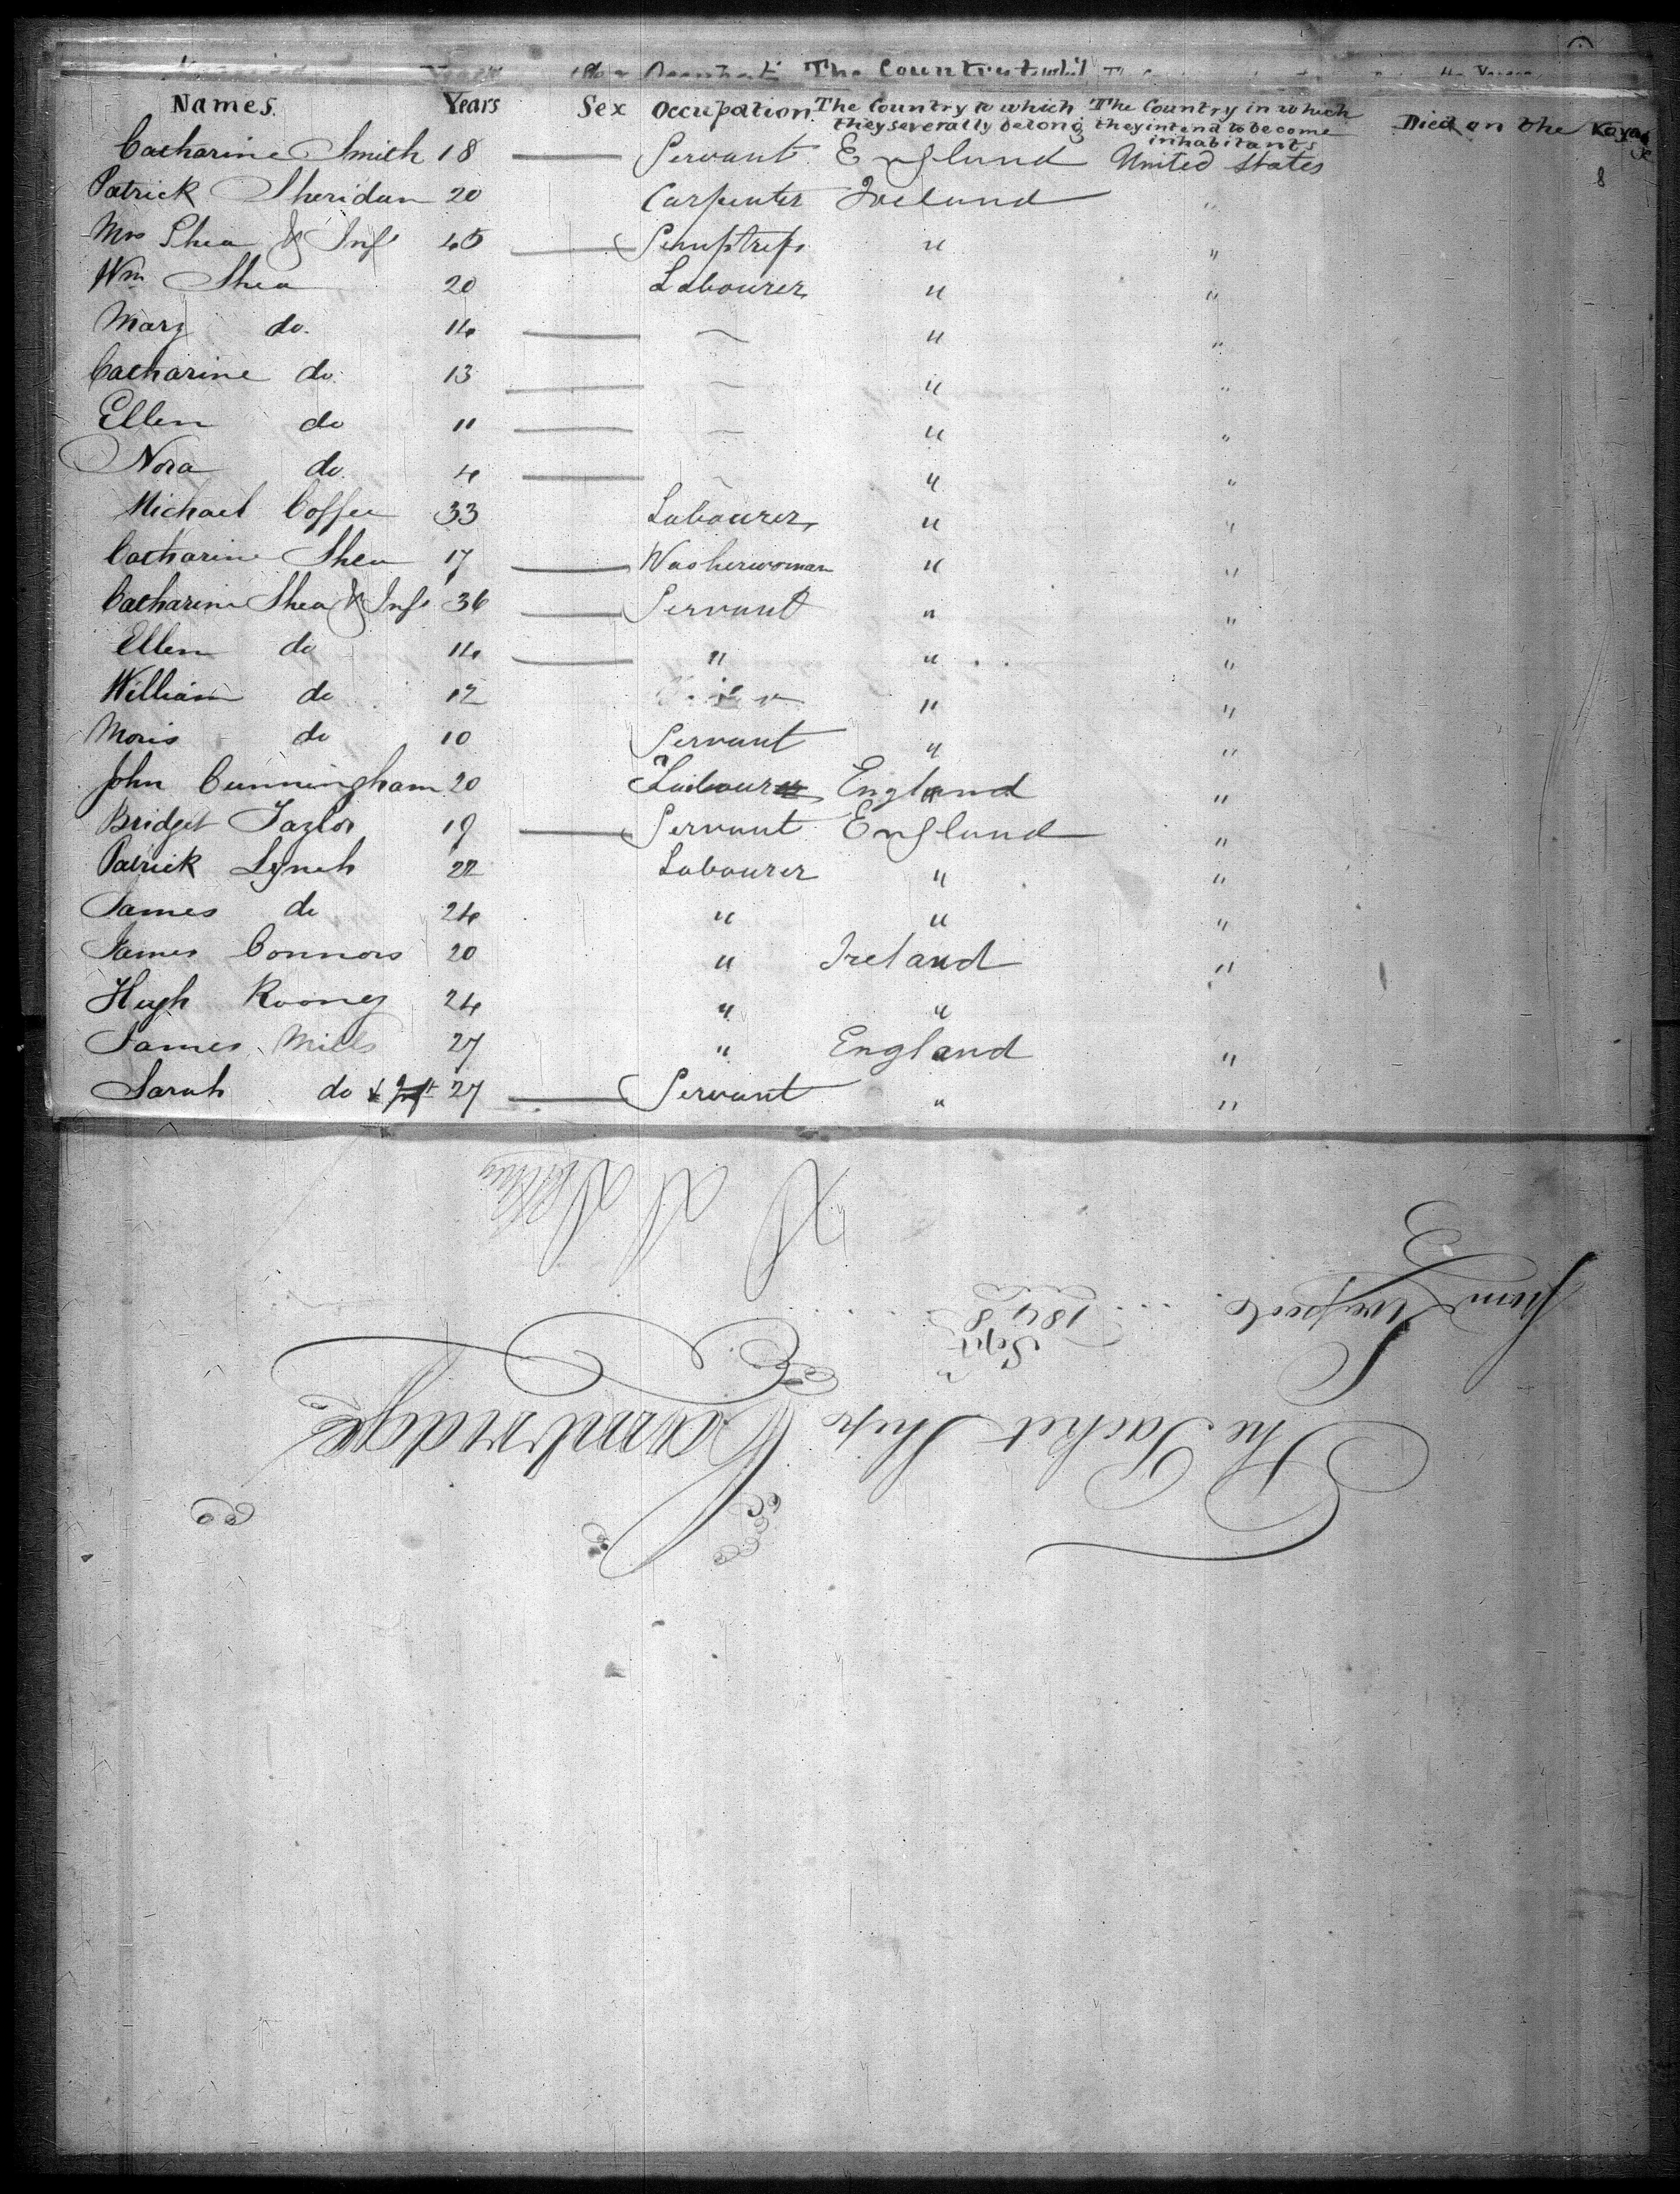 Names. Years Sex Occupation The Country to which they severally belong The Country in which they intend to become inhabitants Died on the Voyage
Catharine Smith 18 Servant England United States 8
Patrick Sheridan 20 Carpenter Ireland "
Mrs Shea & Inft 45 Sempstress " "
Wm Shea 20 Labourer " "
Mary do. 14 " "
Catharine do. 13 " "
Ellen do 11 " "
Nora do. 4 " "
Michael Coffee 33 Labourer " "
Catharine Shea 17 Washerwoman " "
Catharine Shea & Inft 36 Servant " "
Ellen do 14 " " "
William do 12 " "
Moris do 10 Servant " "
John Cunningham 20 Labourer England "
Bridget Taylor 19 Servant England "
Patrick Lynch 22 Labourer " "
James do 24 " " "
James Connors 20 " Ireland "
Hugh Roony 24 " "
James Mills 27 " England "
Sarah do & Inft 27 Servant " "
The Packet Ship Cambridge
Sept
from Liverpool 1848